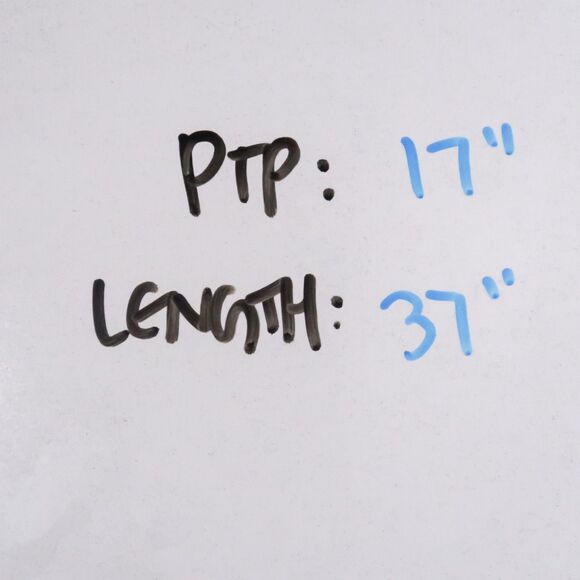 PTP: 17"
LENGTH: 37"